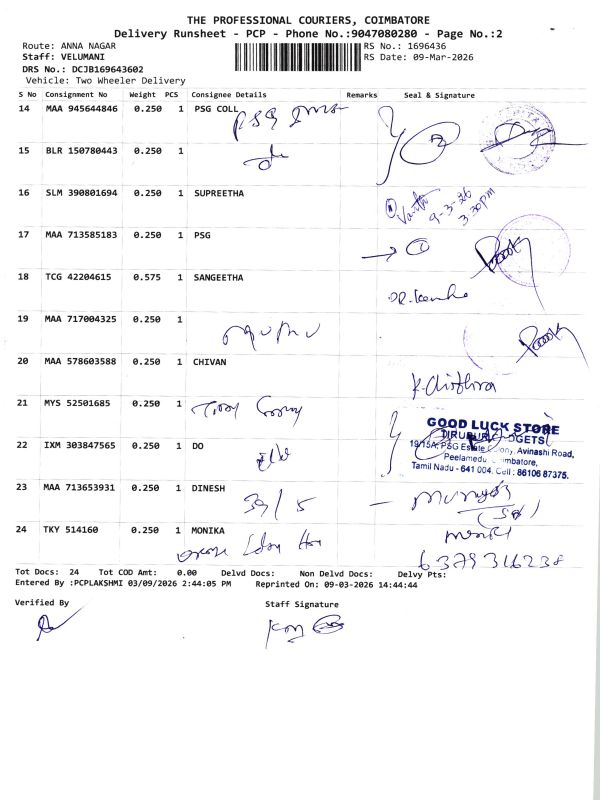 THE PROFESSIONAL COURIERS, COIMBATORE
Delivery Runsheet - PCP - Phone No.:9047080280 - Page No.:2
Route: ANNA NAGAR RS No.: 1696436
Staff: VELUMANI RS Date: 09-Mar-2026
DRS No.: DCJB169643602
Vehicle: Two Wheeler Delivery
S No Consignment No Weight PCS Consignee Details Remarks Seal & Signature
14 MAA 945644846 0.250 1 PSG COLL
PSG
15 BLR 150780443 0.250 1
16 SLM 390801694 0.250 1 SUPREETHA
9-3-26
3.30pm
17 MAA 713585183 0.250 1 PSG
18 TCG 42204615 0.575 1 SANGEETHA
19 MAA 717004325 0.250 1
20 MAA 578603588 0.250 1 CHIVAN
K. Chithra
21 MYS 52501685 0.250 1
GOOD LUCK STORE
19/15A, PSG Estate Colony, Avinashi Road,
22 IXM 303847565 0.250 1 DO
Tamil Nadu - 641 004. Cell : 86106 87375.
23 MAA 713653931 0.250 1 DINESH
39/5
24 TKY 514160 0.250 1 MONIKA
6379316238
Tot Docs: 24 Tot COD Amt: 0.00 Delvd Docs: Non Delvd Docs: Delvy Pts:
Entered By :PCPLAKSHMI 03/09/2026 2:44:05 PM Reprinted On: 09-03-2026 14:44:44
Verified By Staff Signature